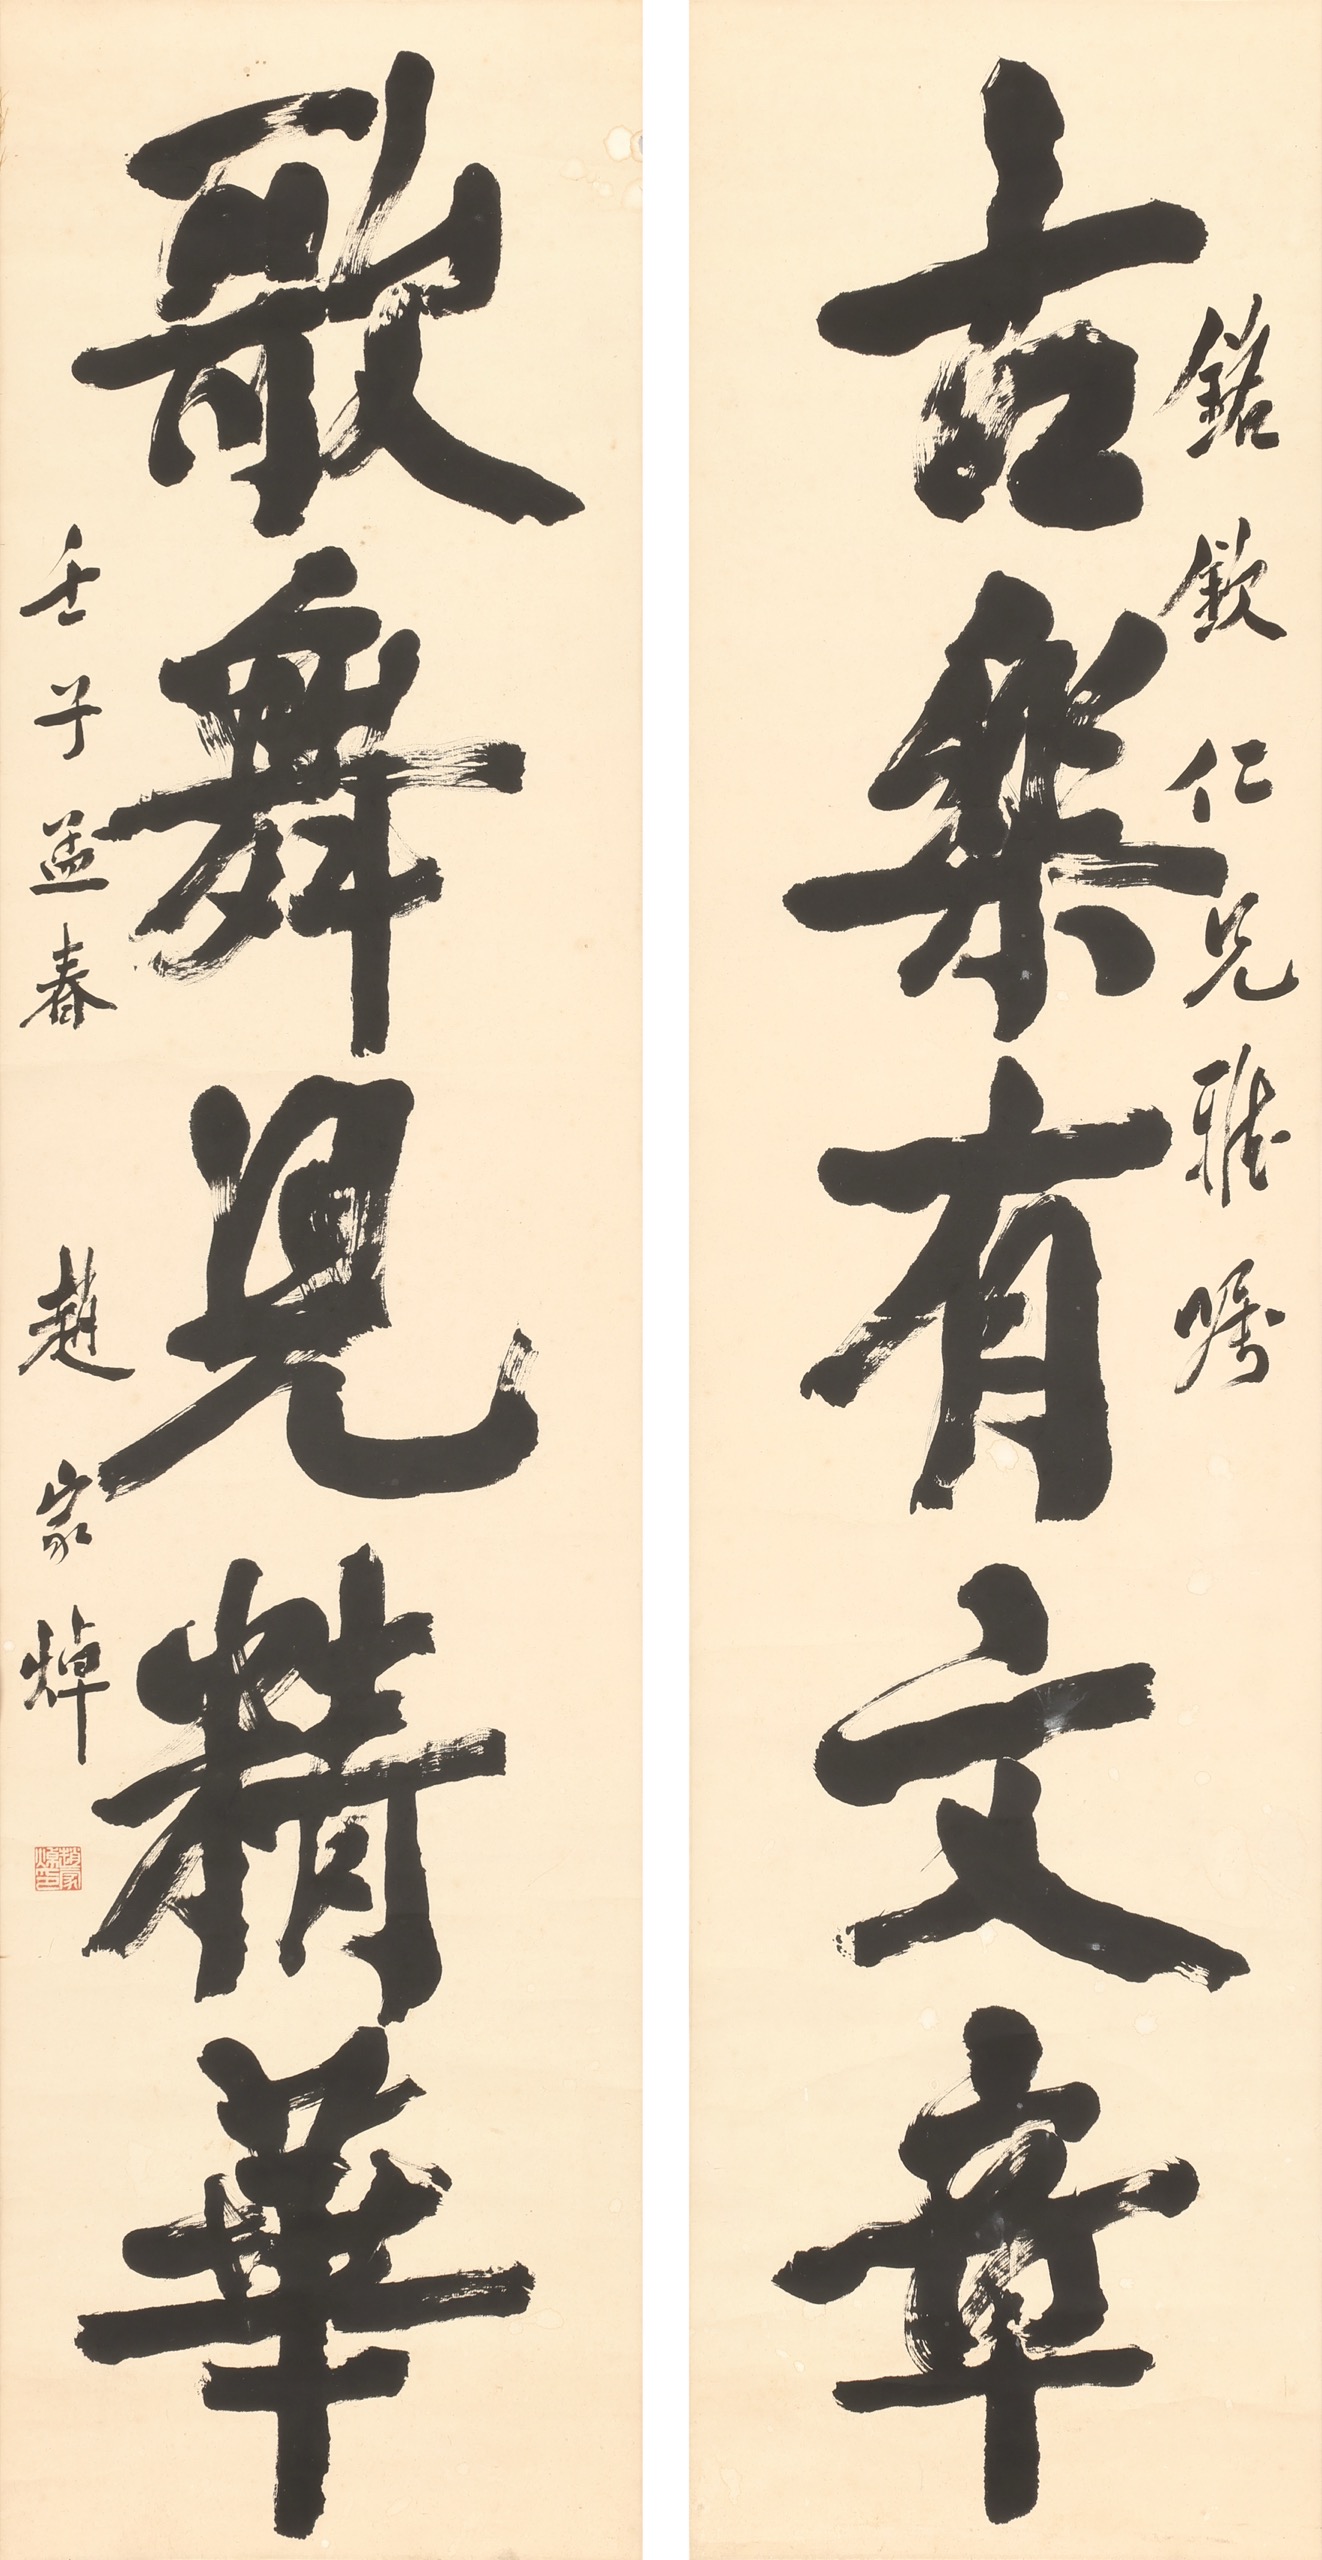 銘欽仁兄雅嘱
古樂有文章
歌舞見精華
壬子孟春
趙家焯
趙家焯印